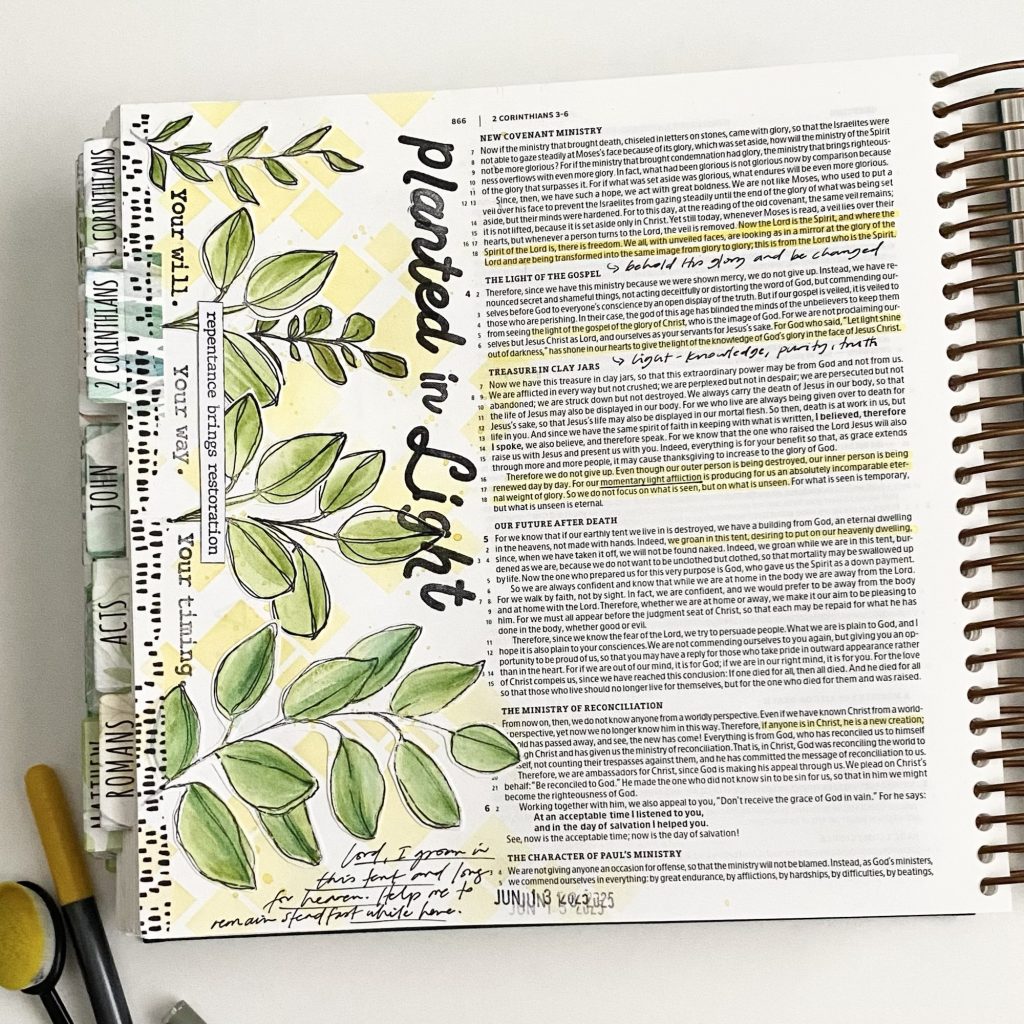 1 CORINTHIANS
2 CORINTHIANS
JOHN
ACTS
ROMANS
MATTHEW
Your will. Your way. Your timing
repentance brings restoration
planted in Light
Lord, I groan in
this tent and long
for heaven. Help me to
remain steadfast while here.
866 | 2 CORINTHIANS 3-6
NEW COVENANT MINISTRY
7 Now if the ministry that brought death, chiseled in letters on stones, came with glory, so that the Israelites were
not able to gaze steadily at Moses's face because of its glory, which was set aside, how will the ministry of the Spirit
not be more glorious? For if the ministry that brought condemnation had glory, the ministry that brings righteous-
ness overflows with even more glory. In fact, what had been glorious is not glorious now by comparison because
of the glory that surpasses it. For if what was set aside was glorious, what endures will be even more glorious.
12 13 Since, then, we have such a hope, we act with great boldness. We are not like Moses, who used to put a
veil over his face to prevent the Israelites from gazing steadily until the end of the glory of what was being set
14 aside, but their minds were hardened. For to this day, at the reading of the old covenant, the same veil remains;
15 it is not lifted, because it is set aside only in Christ. Yet still today, whenever Moses is read, a veil lies over their
16 17 hearts, but whenever a person turns to the Lord, the veil is removed. Now the Lord is the Spirit, and where the
18 Spirit of the Lord is, there is freedom. We all, with unveiled faces, are looking as in a mirror at the glory of the
Lord and are being transformed into the same image from glory to glory; this is from the Lord who is the Spirit.
behold His glory and be changed
THE LIGHT OF THE GOSPEL
4 2 Therefore, since we have this ministry because we were shown mercy, we do not give up. Instead, we have re-
nounced secret and shameful things, not acting deceitfully or distorting the word of God, but commending our-
3 selves before God to everyone's conscience by an open display of the truth. But if our gospel is veiled, it is veiled to
4 those who are perishing. In their case, the god of this age has blinded the minds of the unbelievers to keep them
5 from seeing the light of the gospel of the glory of Christ, who is the image of God. For we are not proclaiming our-
6 selves but Jesus Christ as Lord, and ourselves as your servants for Jesus's sake. For God who said, "Let light shine
out of darkness," has shone in our hearts to give the light of the knowledge of God's glory in the face of Jesus Christ.
light - knowledge, purity, truth
TREASURE IN CLAY JARS
7 Now we have this treasure in clay jars, so that this extraordinary power may be from God and not from us.
8 9 We are afflicted in every way but not crushed; we are perplexed but not in despair; we are persecuted but not
10 abandoned; we are struck down but not destroyed. We always carry the death of Jesus in our body, so that
11 the life of Jesus may also be displayed in our body. For we who live are always being given over to death for
12 Jesus's sake, so that Jesus's life may also be displayed in our mortal flesh. So then, death is at work in us, but
13 life in you. And since we have the same spirit of faith in keeping with what is written, I believed, therefore
14 I spoke, we also believe, and therefore speak. For we know that the one who raised the Lord Jesus will also
15 raise us with Jesus and present us with you. Indeed, everything is for your benefit so that, as grace extends
through more and more people, it may cause thanksgiving to increase to the glory of God.
16 Therefore we do not give up. Even though our outer person is being destroyed, our inner person is being
17 renewed day by day. For our momentary light affliction is producing for us an absolutely incomparable eter-
18 nal weight of glory. So we do not focus on what is seen, but on what is unseen. For what is seen is temporary,
but what is unseen is eternal.
OUR FUTURE AFTER DEATH
5 For we know that if our earthly tent we live in is destroyed, we have a building from God, an eternal dwelling
2 in the heavens, not made with hands. Indeed, we groan in this tent, desiring to put on our heavenly dwelling,
3 4 since, when we have taken it off, we will not be found naked. Indeed, we groan while we are in this tent, bur-
dened as we are, because we do not want to be unclothed but clothed, so that mortality may be swallowed up
5 by life. Now the one who prepared us for this very purpose is God, who gave us the Spirit as a down payment.
6 So we are always confident and know that while we are at home in the body we are away from the Lord.
7 8 For we walk by faith, not by sight. In fact, we are confident, and we would prefer to be away from the body
9 and at home with the Lord. Therefore, whether we are at home or away, we make it our aim to be pleasing to
10 him. For we must all appear before the judgment seat of Christ, so that each may be repaid for what he has
done in the body, whether good or evil.
11 Therefore, since we know the fear of the Lord, we try to persuade people. What we are is plain to God, and I
12 hope it is also plain to your consciences. We are not commending ourselves to you again, but giving you an op-
portunity to be proud of us, so that you may have a reply for those who take pride in outward appearance rather
13 14 than in the heart. For if we are out of our mind, it is for God; if we are in our right mind, it is for you. For the love
15 of Christ compels us, since we have reached this conclusion: If one died for all, then all died. And he died for all
so that those who live should no longer live for themselves, but for the one who died for them and was raised.
THE MINISTRY OF RECONCILIATION
From now on, then, we do not know anyone from a worldly perspective. Even if we have known Christ from a world-
perspective, yet now we no longer know him in this way. Therefore, if anyone is in Christ, he is a new creation;
has passed away, and see, the new has come! Everything is from God, who has reconciled us to himself
Christ and has given us the ministry of reconciliation. That is, in Christ, God was reconciling the world to
not counting their trespasses against them, and he has committed the message of reconciliation to us.
Therefore, we are ambassadors for Christ, since God is making his appeal through us. We plead on Christ's
21 behalf: "Be reconciled to God." He made the one who did not know sin to be sin for us, so that in him we might
become the righteousness of God.
6 2 Working together with him, we also appeal to you, "Don't receive the grace of God in vain." For he says:
At an acceptable time I listened to you,
and in the day of salvation I helped you.
See, now is the acceptable time; now is the day of salvation!
THE CHARACTER OF PAUL'S MINISTRY
3 4 We are not giving anyone an occasion for offense, so that the ministry will not be blamed. Instead, as God's ministers,
5 we commend ourselves in everything: by great endurance, by afflictions, by hardships, by difficulties, by beatings,
JUN 13 2025